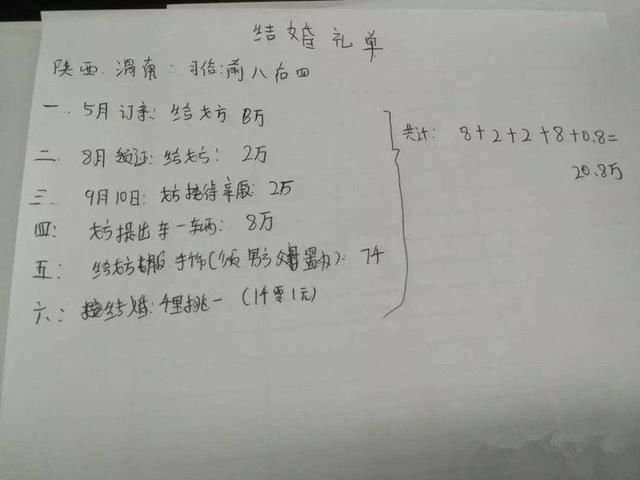 结婚礼单
陕西.渭南：习俗:前八后四
一. 5月订亲：给女方 8万
二. 8月领证：给女方：2万
三. 9月10日：女方接待亲服：2万
四: 女方提出车一车辆：8万
五: 给女方衣服 手饰(须男方父母置办)：7千
六: 结婚：千里挑一 (1千零1元)
共计: 8+2+2+8+0.8=
20.8万